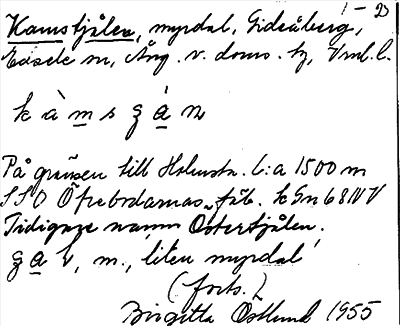 1 - D
Kamstjålen, myrdal, Gideåberg,
Edsele sn, Ång. v. doms. hg, Vnrl. l.
k à m s ʒ å n
På gränsen till Holmstr. C:a 1500 m
SSO Öfrebodarnas fäb. kGn 68NV
Tidigare namn Östertjålen.
ʒ a l, m., liten myrdal
(forts.)
Birgitta Östlund 1955